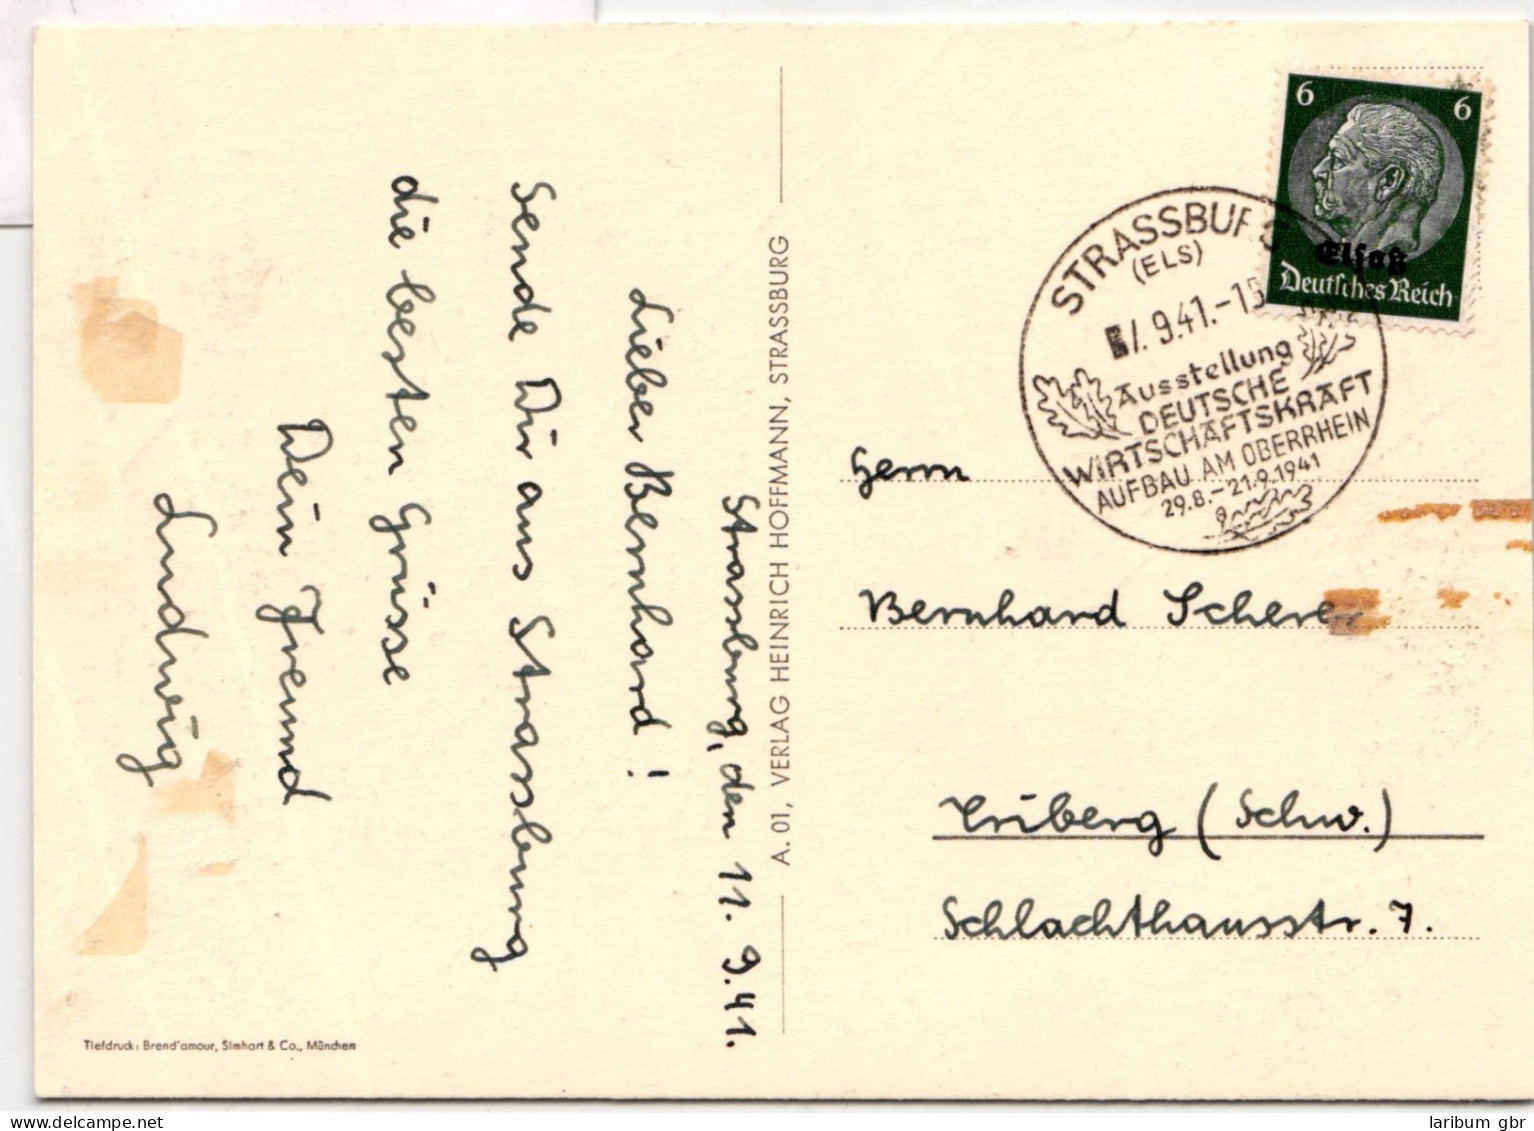 Strassburg, den 11. 9. 41.
Lieber Bernhard!
Sende Dir aus Strassburg
die besten Grüsse
Dein Freund
Ludwig
Tiefdruck: Brend'amour, Simhart & Co., München
A. 01, VERLAG HEINRICH HOFFMANN, STRASSBURG
6 6
Elsaß
Deutsches Reich
STRASSBURG
(ELS)
9.41.-15
Ausstellung
DEUTSCHE
WIRTSCHAFTSKRAFT
AUFBAU AM OBERRHEIN
29.8.-21.9.1941
Herrn
Bernhard Scherer
Triberg (Schw.)
Schlachthausstr. 7.
laribum gbr